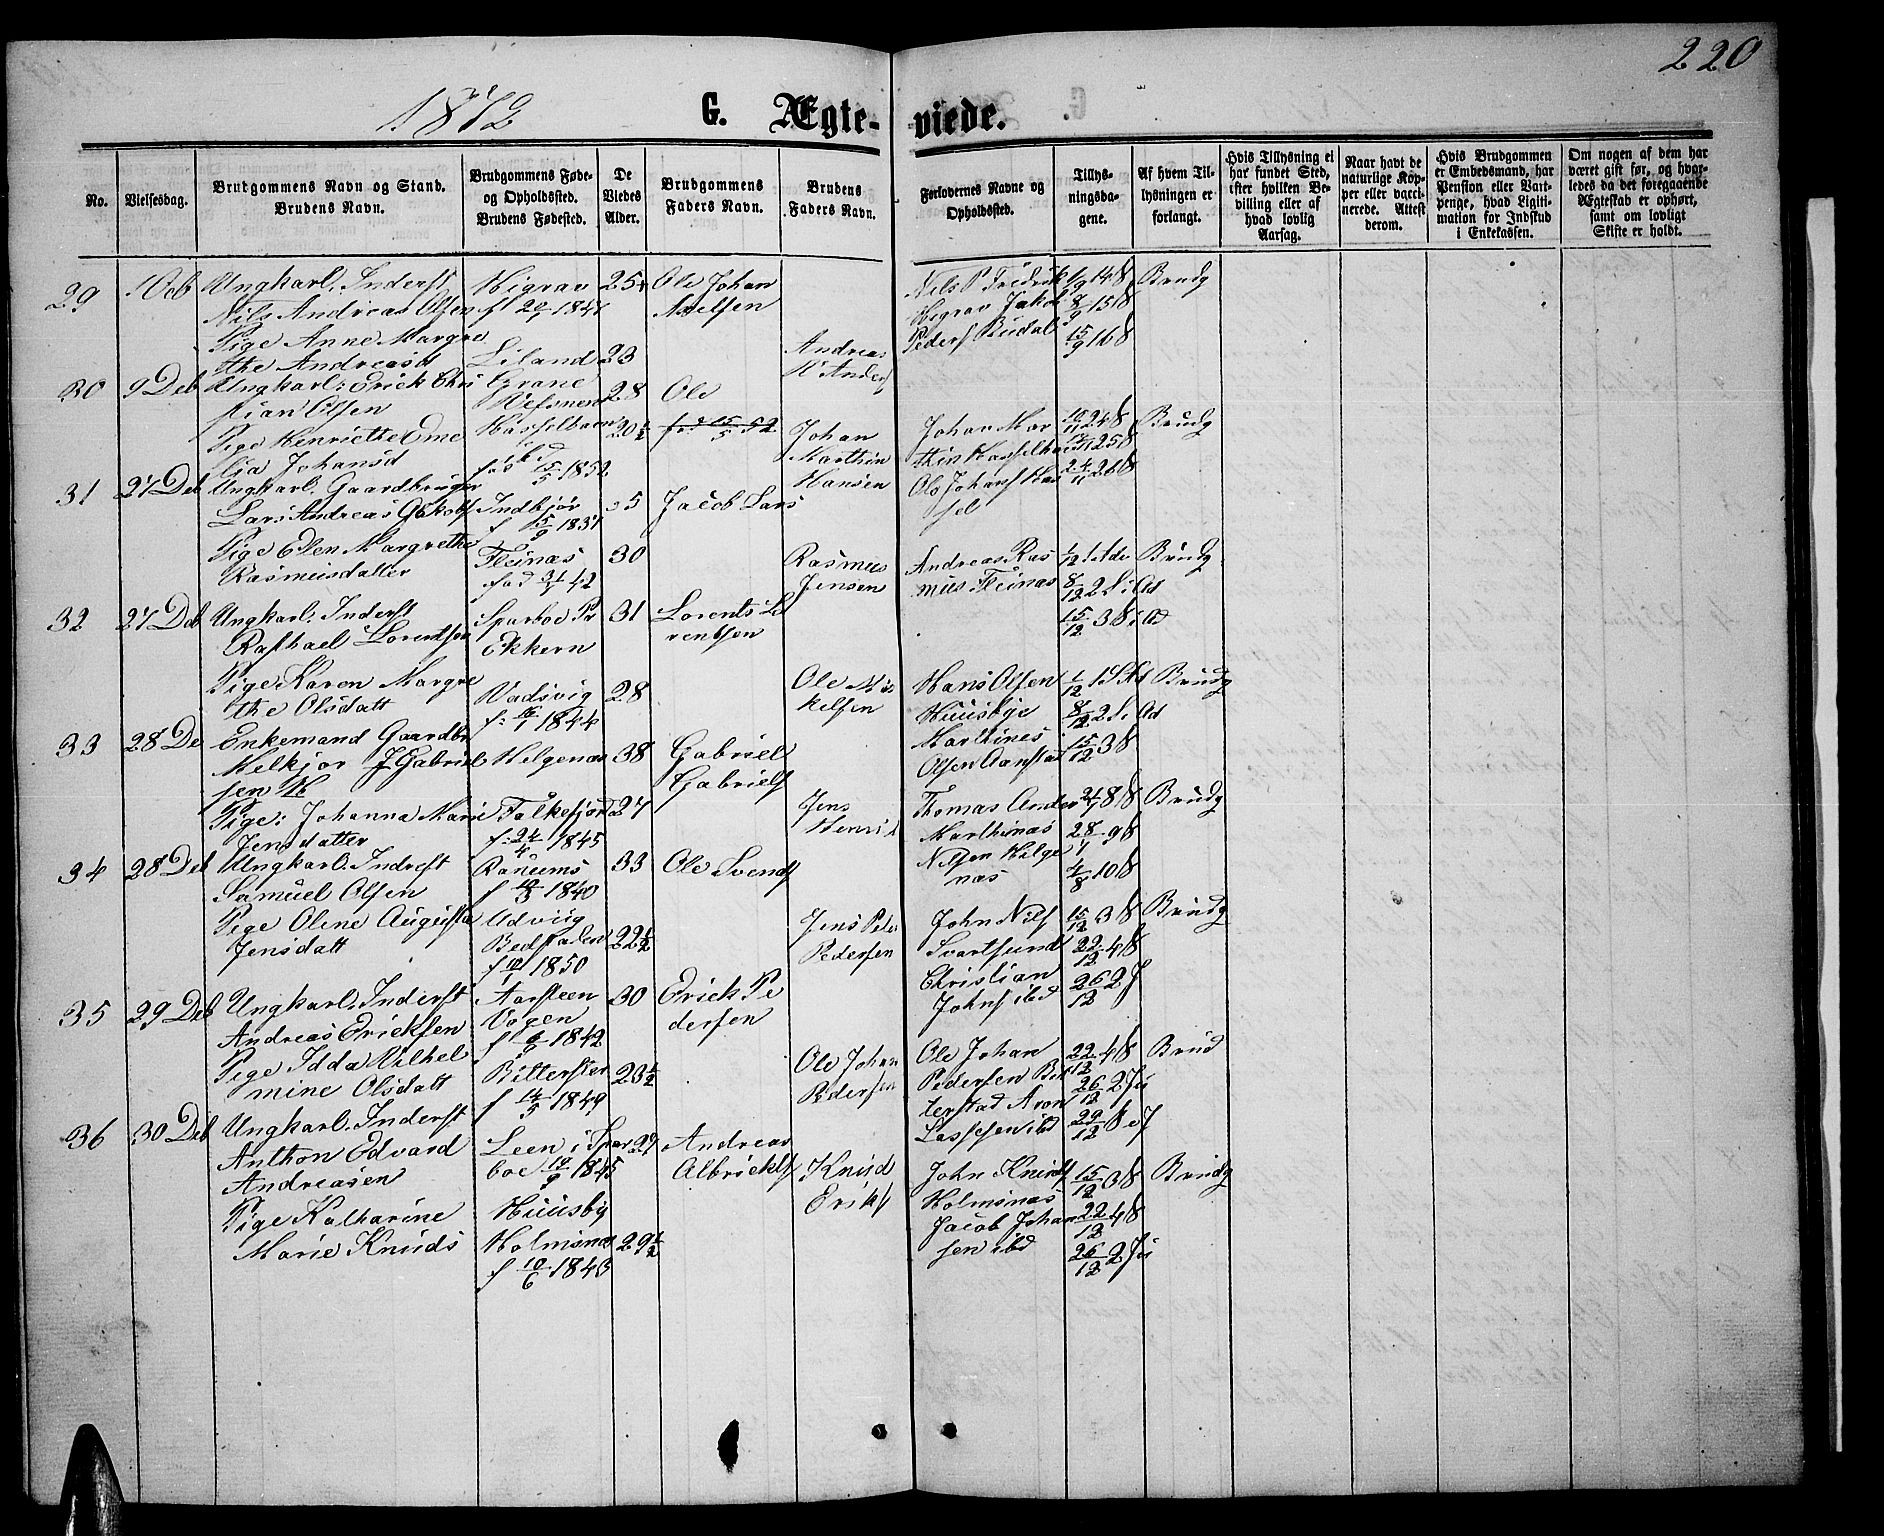 220
1872
G. Ægteviede.
No.
Vielsesdag.
Brudgommens Navn og Stand.
Brudens Navn.
Brudgommens Føde-
og Opholdssted.
Brudens Fødested.
De
Viedes
Alder.
Brudgommens
Faders Navn.
Brudens
Faders Navn.
Forlovernes Navne og
Opholdssted.
Tillys-
ningsda-
gene.
Af hvem Til-
lysningen er
forlangt.
Hvis Tillysning ei
har fundet Sted,
efter hvilken Be-
villing eller af
hvad lovlig
Aarsag.
Naar havt de
naturlige Kop-
per eller vacci-
nerede. Attest
derom.
Hvis Brudgommen
er Embedsmand, har
Pension eller Vart-
penge, hvad Ligiti-
mation for Indskud
i Enkekassen.
Om nogen af dem har
været gift før, og hvor-
ledes da det foregaaende
Ægteskab er ophørt,
samt om lovligt
Skifte er holdt.
29
Ungkarl. Inderst
Nils Andreas Olsen
Pige Anne Margre
the Andreasd
Higrav
Liland
25
23
Ole Johan
Andreas
Nels P Fredrik
Higrav Jakob
Peders Budal
1/9 14 S
8/9 15 S
15/9 16 S
Brudg
30 9 Deb
Ungkarl: Erick Chri
stian Olsen
Pige Henriethe Eme
lia Johansd
Grane
Vefsnen
fød 15/5 1852
28
20 1/2
Ole
fød 15/5 52
Johan
Marthin
Hansen
Johan Mar
thin Hasselhavn
Ole Johans Has
sel
10/11 24 S
17/11 25 S
24/11 26 S
Brudg
31 27 Deb
Ungkarl. Gaardbruger
Lars Andreas
Pige Elen Margrethe
Rasmusdatter
Indbjør
f 15/9 1837
Fleinæs
fød 31/7 42
35
30
Jacob Lars
Rasmus
Jensen
Andreas Ras
mus Fleinæs
Brudg
32 27 Deb
Ungkarl. Inderst
Raphael Lorentsen
Pige Karen Margre
the Olsdatt
Sparboe Pr
Ekkern
Vadsvig
f: 16/1 1844
31
28
Lorents Lo
rentsen
Ole Mik
kelsen
Hans Olsen
Huusbye
Marthines
Olsen Aanstad
Brudg
33 28 De
Enkemand Gaardbr
Melkjor J Gabriel
sen
Pige: Johanna Marie
Jensdatter
Helgenæs
Falkefjord
f: 24/4 1845
38
27
Gabriel
Gabriels
Jens
Henrik
Thomas Ander
Marthinas
Nilsen Helge
næs
21/7 8 S
28/7 9 S
4/8 10 S
Brudg
34 28 Deb
Ungkarl. Indrest
Samuel Olsen
Pige Oline Augusta
Jensdatt
Ranums
1840
Udviig
1850
33
22 1/2
Ole Svends
Jens Peder
Pedersen
John Nils
Svartsund
Christian
Johns ibd
15/12 3 S
22/12 4 S
26/12 2 J
Brudg
35 29 Deb
Ungkarl. Inderst
Andreas Ericksen
Pige Idda Vilhel
mine Olsdatt
Aarsteen
Vogen
1842
Bitterstad
f 14/5 1849
30
23 1/2
Erick Pe
dersen
Ole Johan
Pedersen
Ole Johan
Pedersen Bit
terstad Aron
Lassesen ibd
22/12 4 S
26/12 2 Ju
29/12
Brud
36 30 Deb
Ungkarl. Inderst
Anthon Edvard
Andreasen
Pige Katharine
Marie Knuds
Leen i Spar
boe 10/9 1845
Huusby
Holmsnæs
f 10/6 1843
27
29 1/2
Andreas
Albrickts
Knud
Ericks
John Knuds
Holmsnæs
Jacob Johan
sen ibd
15/12 3 S
22/12 4 S
26/12 2 Ju
Brudg